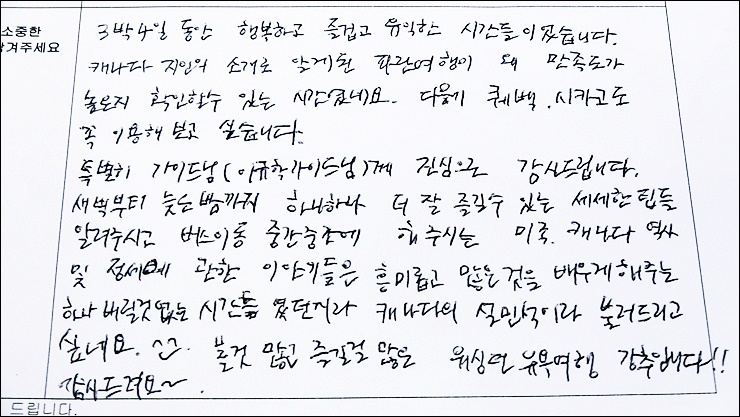 소중한
남겨주세요
3박4일 동안 행복하고 즐겁고 유익한 시간들이었습니다.
캐나다 지인의 소개로 알게된 파란여행이 왜 만족도가
높은지 확인할수 있는 시간였네요. 다음에 퀘백, 시카고도
꼭 이용해 보고 싶습니다.
특별히 가이드님(이규학가이드님)께 진심으로 감사드립니다.
새벽부터 늦은밤까지 하나하나 더 잘 즐길수 있는 세세한 팁들
알려주시고 버스이동 중간중간에 해주시는 미국, 캐나다 역사
및 정세에 관한 이야기들은 흥미롭고 많은것을 배우게 해주는
하나 버릴것 없는 시간들 였던지라 캐나다의 설민석이라 불러드리고
싶네요. ^^. 볼것 많고 즐길걸 많은 워싱턴 뉴욕여행 강추입니다!!
감사드려요~.
드립니다.